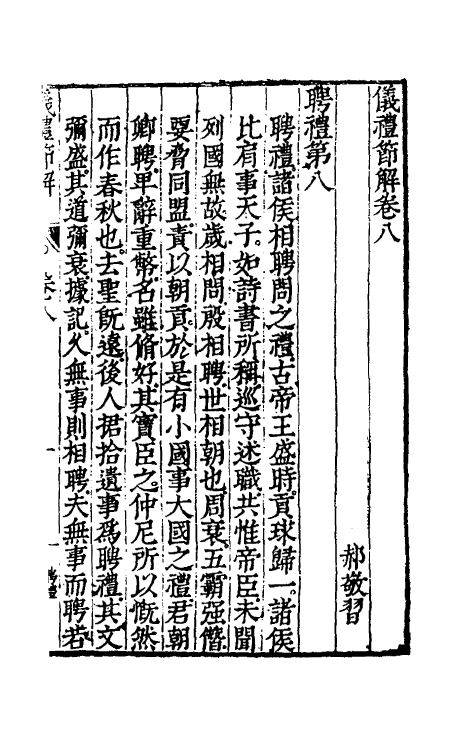 儀禮節解卷八
郝敬習
聘禮第八
聘禮諸侯相聘問之禮古帝王盛時貢球歸一諸侯
比肩事天子。如詩書所稱巡守述職共惟帝臣未聞
列國無故歲相問殷相聘世相朝也周衰五霸强僭
要脅同盟責以朝貢於是有小國事大國之禮君朝
卿聘卑辭重幣名雖脩好其實臣之。仲尼所以慨然
而作春秋也。去聖旣遠後人捃拾遺事爲聘禮其文
彌盛其道彌衰據記久無事則相聘夫無事而聘若
儀禮節解 卷八 一